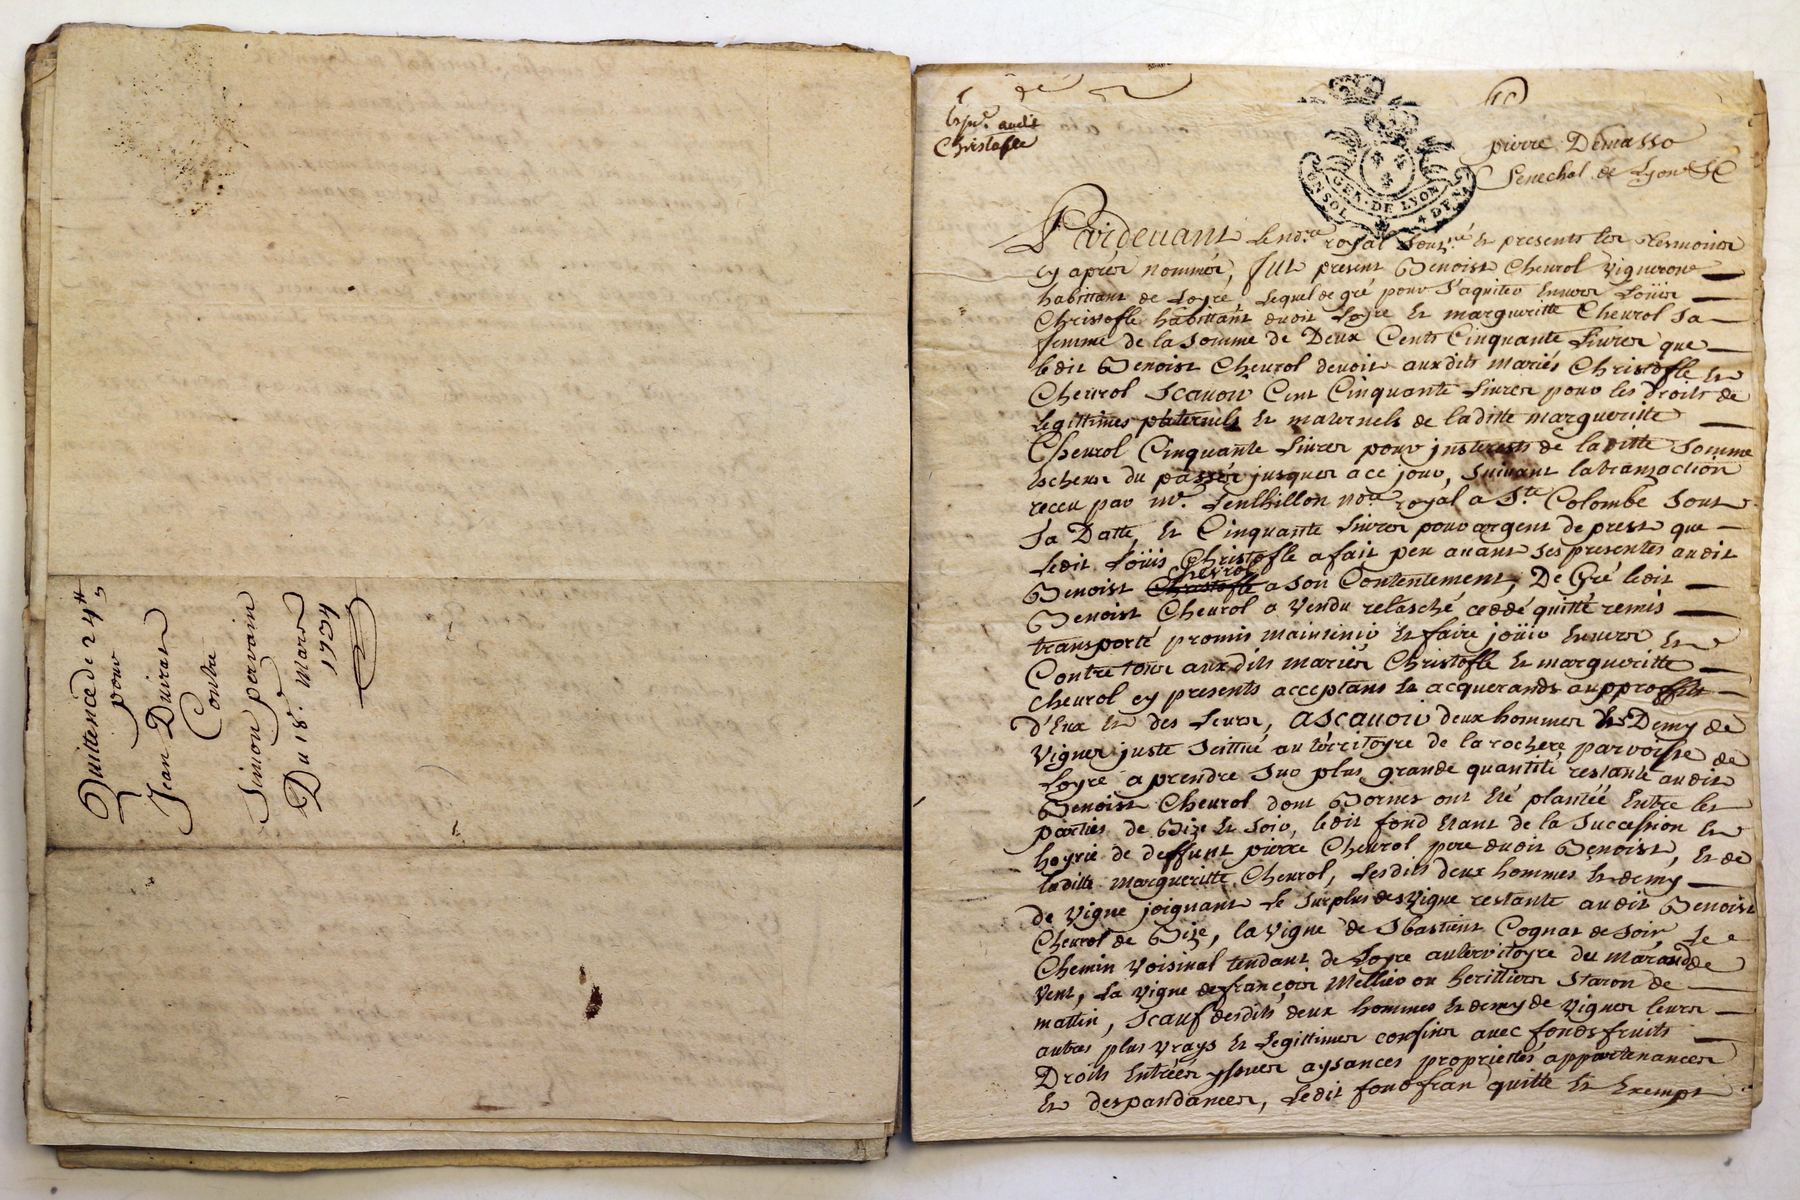 Quittence de 24tt 5s
pour
Jean Duivat
Contre
Simon pervain
Du 18e. Mars
1734
de
Exped. audit
Christofle
GEN. DE LYON
pierre Demasso
Senechal de Lyon &c
Pardeuant le nore royal soussné et presents les tesmoins
cy aprés nommés, fut present Benoist Cheurol vigneron
habittant de Loyre, lequel de gré pour s'aquiter enuers Loüis
Christofle habittant dudit Loyre et margueritte Cheurol sa
femme de la somme de Deux Cents Cinquante liures que
ledit Benoist Cheurol deuoit auxdits mariés Christofle et
Cheurol scauoir Cent Cinquante liures pour les droits de
legittimes paternels et maternels de laditte margueritte
Cheurol Cinquante liures pour jnsterests de laditte somme
escheus du passés jusques a ce jour, suiuant la transaction
receu par me. nore royal a Ste Colombe sous
sa Datte, et Cinquante liures pour argent de prest que
ledit Loüis Christofle a fait peu auant ses presentes audit
Benoist Christofle Cheurol a son Contentement, De Gré ledit
Benoist Cheurol a vendu relasché ceddé quitté remis
transporté promis maintenir et faire joüir enuers et
Contre tous auxdits mariés Christofle et margueritte
cheurol cy presents acceptans et acquerands au proffit
d'Eux et des leurs, ascauoir deux hommes et Demy de
vignes juste scittué au territoyre de la rochere, parroisse de
Loyre a prendre sur plus grande quantité restante audit
Benoist Cheurol dont Bornes ont été plantée Entre les
parties de Bize et soir, ledit fond étant de la succession et
hoyrie de deffunt pierre Cheurol pere dudit Benoist, et de
laditte margueritte Cheurol, lesdits deux hommes et demy
de vigne joignant le surplus des vigne restante audit Benoist
Cheurol de Bize, la vigne de Sbastient Cognat de soir, le
Chemin voisinal tendant de Loyre au territoyre du marand de
vent, la vigne de françois Mellier ou herittiers Staron de
mattin, scauf desdits deux hommes et demy de vignes leurs
autres plus vrays et legittimes confins auec fonds fruits
Droits Entrées yssues aysances proprietés appartenances
et despandances, ledit fond fran quitte et Exempt